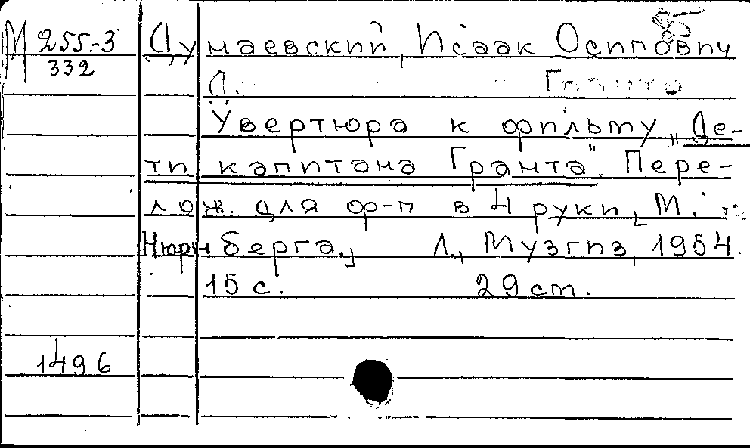 М 255-3
332
85
Дунаевский, Исаак Осипович
Увертюра к фильму „Де-
ти капитана Гранта“. Пере-
лож. для ф-п в 4 руки [М.
Нюрнберга.] Л., Музгиз, 1954.
15 с. 29 см.
1496